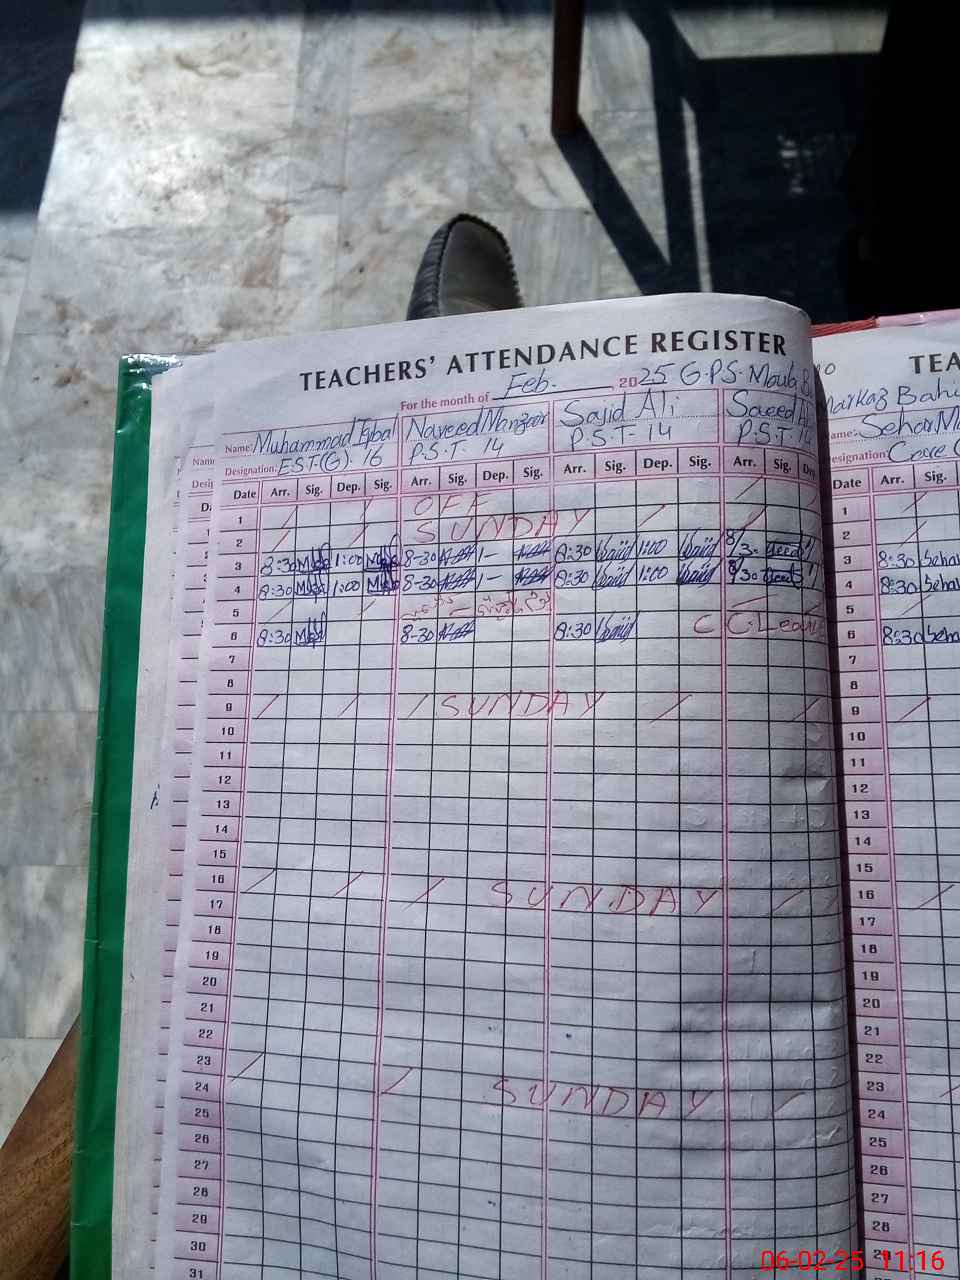 TEACHERS' ATTENDANCE REGISTER
For the month of Feb. , 2025 G.P.S. Moula
Name: Muhammad Iqbal Naveed Manzoor Sajid Ali Saeed
Designation: E.S.T.(G). 16 P.S.T. 14 P.S.T- 14 P.S.T. 14
Date Arr. Sig. Dep. Sig. Arr. Sig. Dep. Sig. Arr. Sig. Dep. Sig. Arr. Sig.
1 OFF
2 SUNDAY
3 8:30 1:00 8-30 1- 8:30 1:00 8/30
4 8:30 1:00 8-30 1- 8:30 1:00 8/30
5
6 8:30 8-30 8:30 C C.Leave
7
8
9 SUNDAY
10
11
12
13
14
15
16 SUNDAY
17
18
19
20
21
22
23 SUNDAY
24
25
26
27
28
29
30
31
TEA
Markaz
Name: Sehar
Designation:
Date Arr. Sig.
1
2
3 8:30 Sehar
4 8:30 Sehar
5
6 8:30 Seha
7
8
9
10
11
12
13
14
15
16
17
18
19
20
21
22
23
24
25
26
27
28
29
06-02-25 11:16